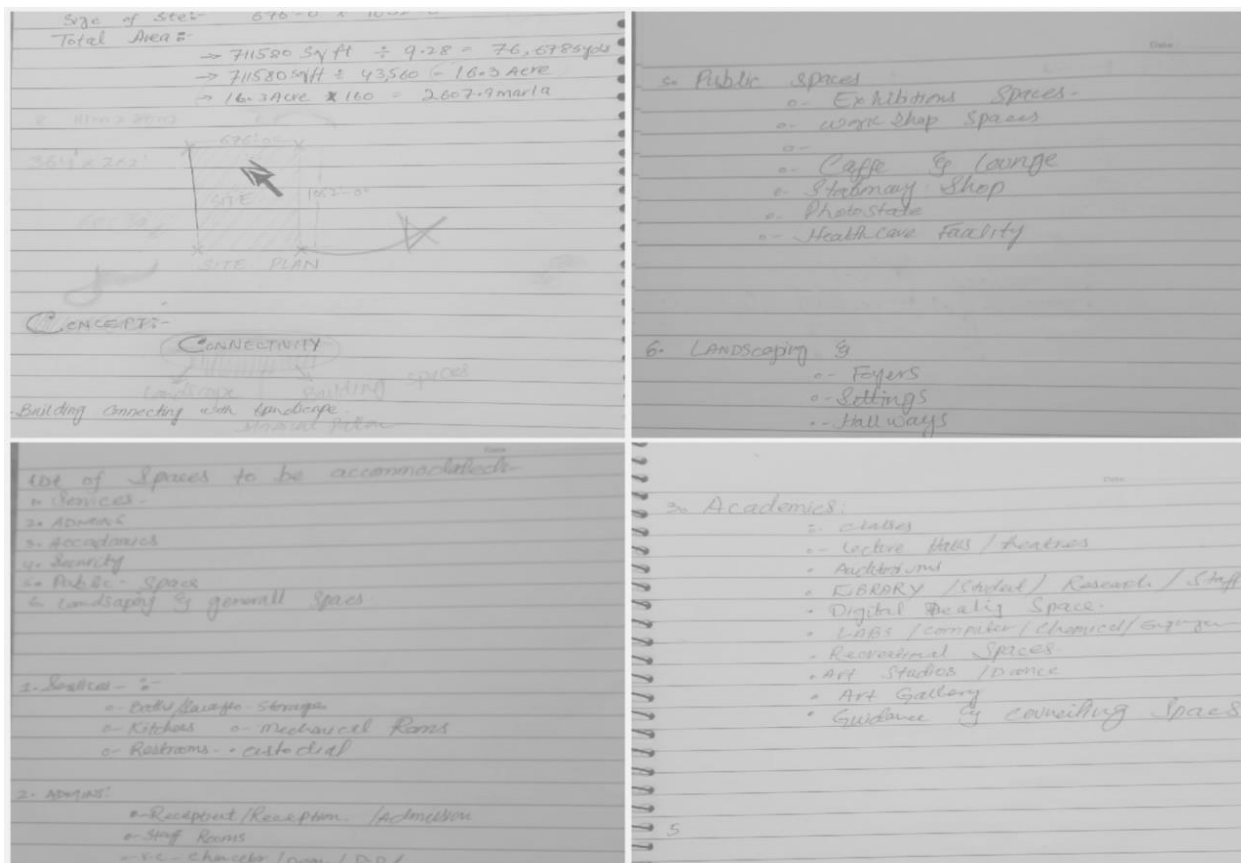 Size of Site:- 676'-0 x 1052'-0
Total Area:-
→ 711580 Sqft ÷ 9.28 = 76,678 Syds
→ 711580 Sqft ÷ 43,560 = 16.3 Acre
→ 16.3 Acre x 160 = 2607.9 marla
364' x 202'
676'-0"
SITE
1052'-0"
SITE PLAN
CONCEPT:-
CONNECTIVITY
Landscape Building Spaces
Building Connecting with Landscape.
Date
5- Public Spaces
o- Exhibitions Spaces-
o- work shop Spaces
o-
o- Caffe & lounge
o- Stationary Shop
o- Photostate
o- Healthcare Facility
6- LANDScaping &
o- Foyers
o- Sittings
o- Hallways
Date
List of Spaces to be accommodated-
1- Services-
2- ADMINS
3- Accadamics
4- Security
5- Public - Space
6- Landscaping & generall Spaces
1- Services - :-
Storages
o- Kitchens o- Mechanical Rooms
o- Restrooms - • custodial
2- ADMINS:
o- Reception /Admission
o- Staff Rooms
o- V.C- Chancelor /
Date
3- Academics:
classes
o- Lecture Halls / theatres
• Auditoriums
• LIBRARY /Student/ Research / Staff
• Digital Space.
• LABS /computer/chemical/
• Recreational Spaces
• Art Studios /Dance
• Art Gallery
• Guidance & counciling Spaces
5